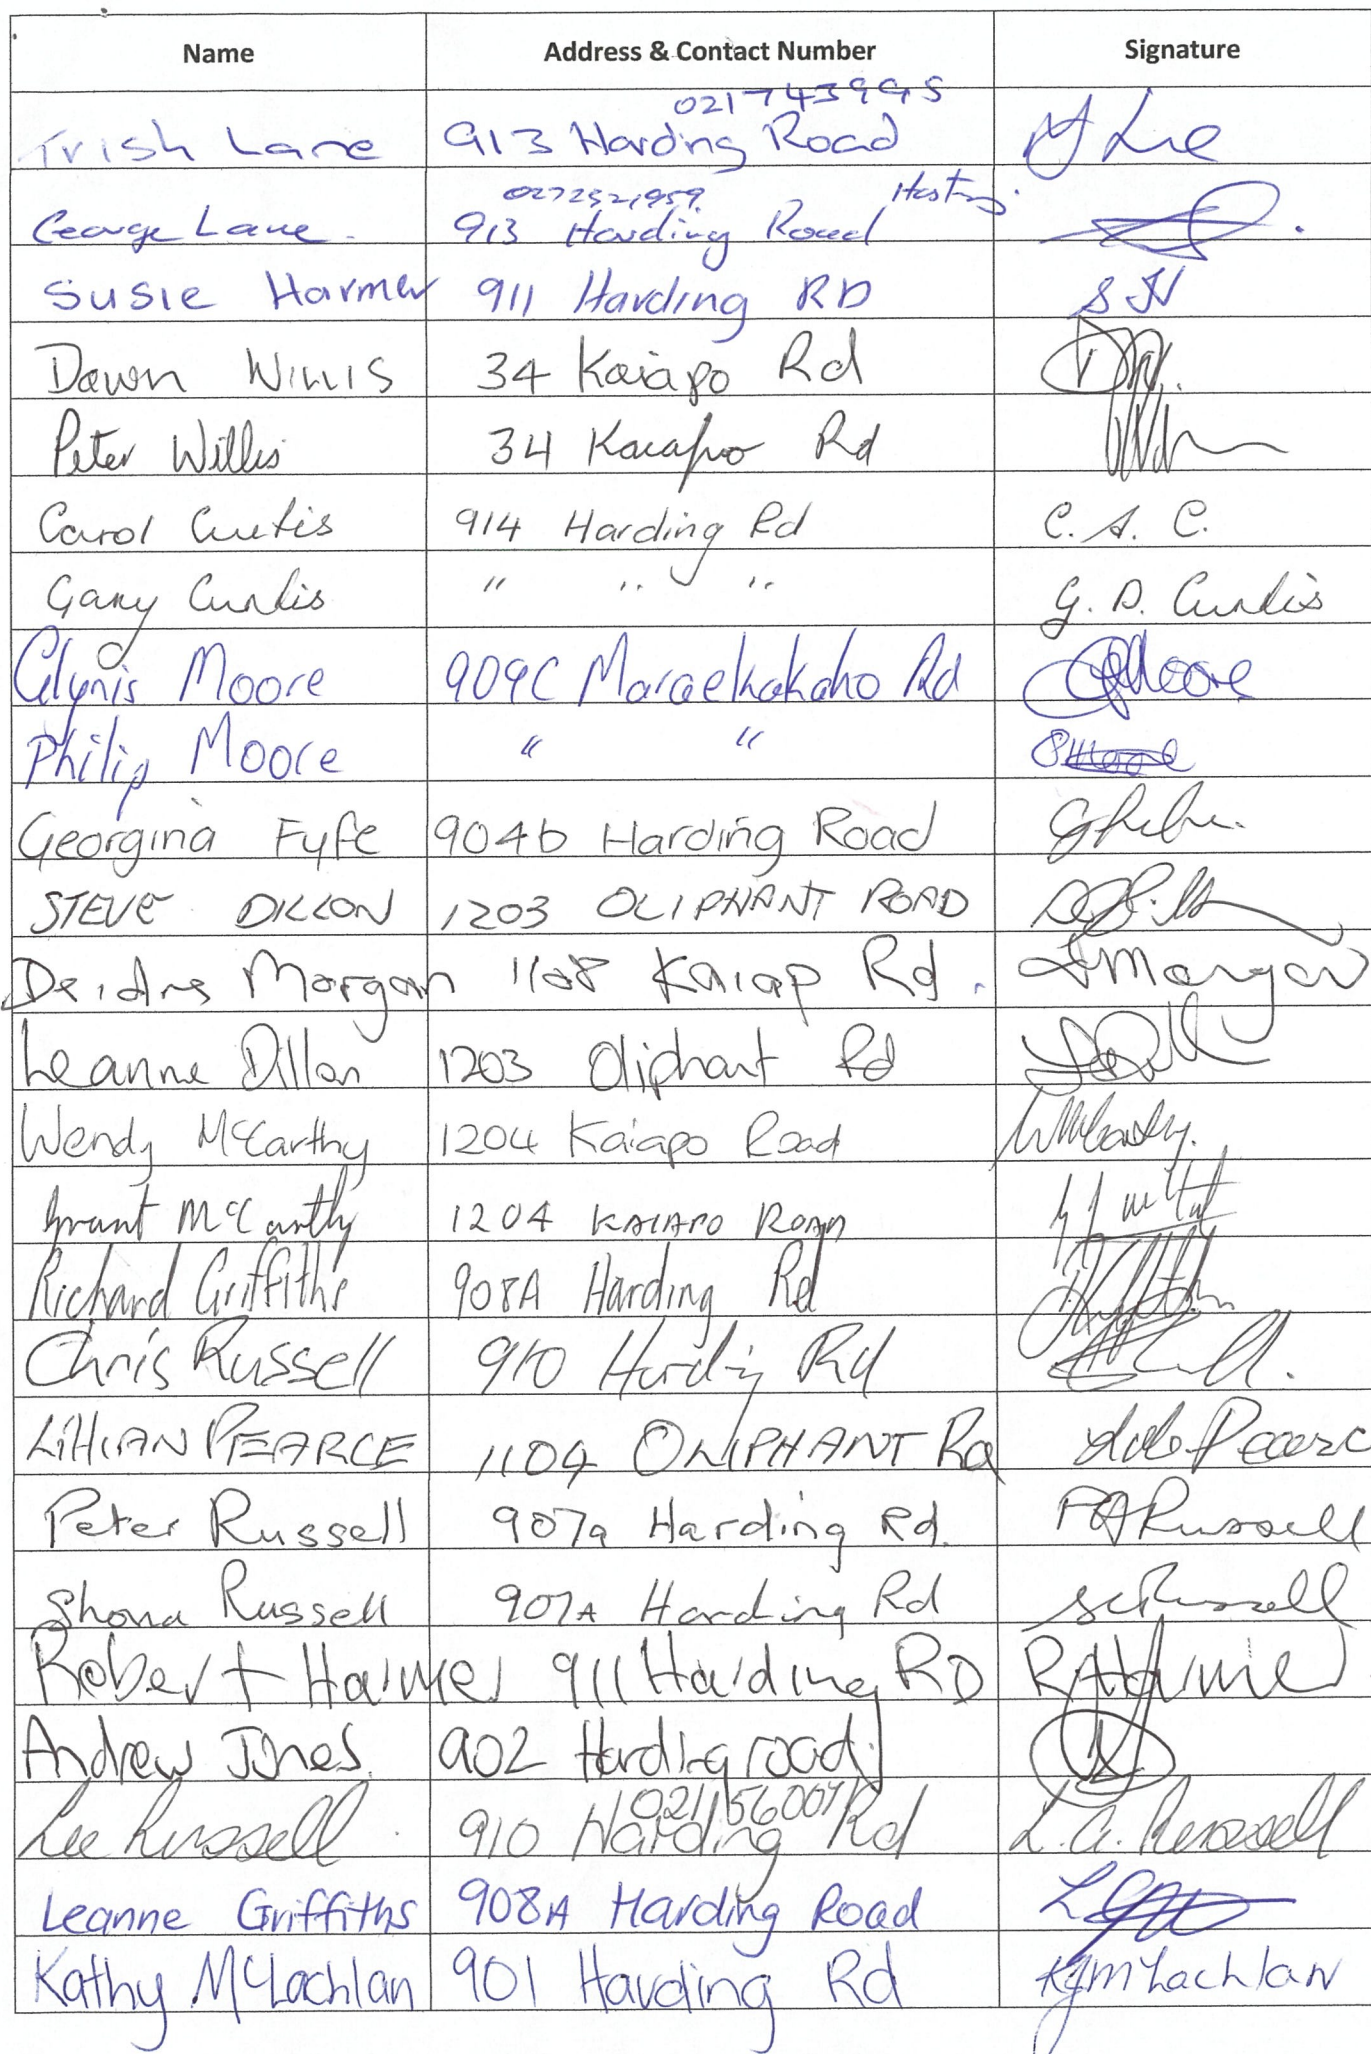 Name Address & Contact Number Signature
0217439995
Trish Lane 913 Harding Road
0272321959 Hastings
George Lane. 913 Harding Road
Susie Harmer 911 Harding RD S H
Dawn Willis 34 Kaiapo Rd
Peter Willis 34 Kaiapo Rd
Carol Curtis 914 Harding Rd C. A. C.
Gary Curtis " " " G. D. Curtis
Glynis Moore 909C Maraekakaho Rd GMoore
Philip Moore " " PMoore
Georgina Fyfe 904b Harding Road
STEVE DILLON 1203 OLIPHANT ROAD
Deidre Morgan 1108 Kaiap Rd. Morgan
Leanne Dillon 1203 Oliphant Rd
Wendy McCarthy 1204 Kaiapo Road
Grant McCarthy 1204 KAIAPO ROAD
Richard Griffiths 908A Harding Rd
Chris Russell 910 Harding Rd
LILLIAN PEARCE 1104 OLIPHANT Rd Pearc
Peter Russell 907a Harding Rd. Russell
Shona Russell 907A Harding Rd SCRussell
Robert Harmer 911 Harding RD RAHarmer
Andrew Jones 902 Harding road
Lee Russell. 910 Harding Rd L.A. Russell
Leanne Griffiths 908A Harding Road
Kathy McLachlan 901 Harding Rd KJMcLachlan